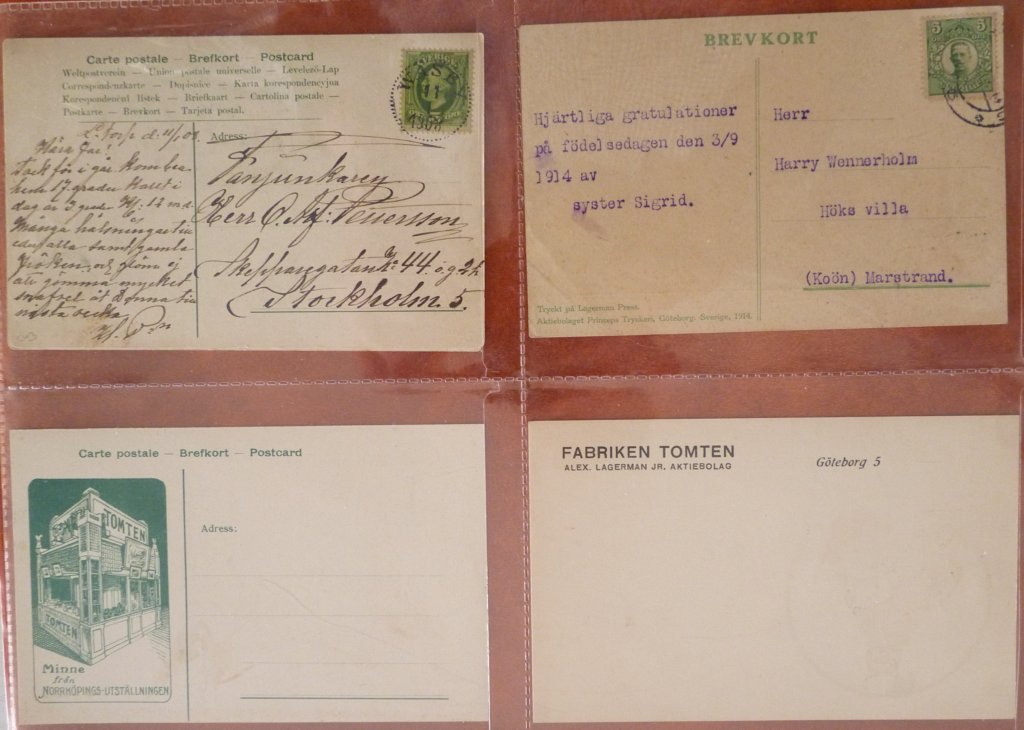 Carte postale — Brefkort — Postcard
Weltpostverein — Union postale universelle — Levelező-Lap
Correspondenzkarte — Dopisnice — Karta korespondencyjua
Korespondencni listek — Briefkaart — Cartolina postale —
Postkarte — Brevkort — Tarjeta postal.
SVERIGE
11
1908
Adress:
Kära Far!
Tack för i går kom bra
hem 17 grader kallt i
dag är 2 grader Kl. 12 md
Många hälsningar till
eder alla samt gamla
Fröken och glöm ej
Fanjunkaren
Herr C. Alf. Pettersson
Skepparegatan No 44. ö.g. 2 tr
Stockholm. 5.
BREVKORT
5 5
Hjärtliga gratulationer
på födelsedagen den 3/9
1914 av
syster Sigrid.
Herr
Harry Wennerholm
Höks villa
(Koön) Marstrand.
Tryckt på Lagerman Press.
Aktiebolaget Princeps Tryckeri, Göteborg. Sverige, 1914.
Carte postale — Brefkort — Postcard
Adress:
TOMTEN
TOMTEN
Minne
från
NORRKÖPINGS-UTSTÄLLNINGEN
FABRIKEN TOMTEN
ALEX. LAGERMAN JR. AKTIEBOLAG
Göteborg 5